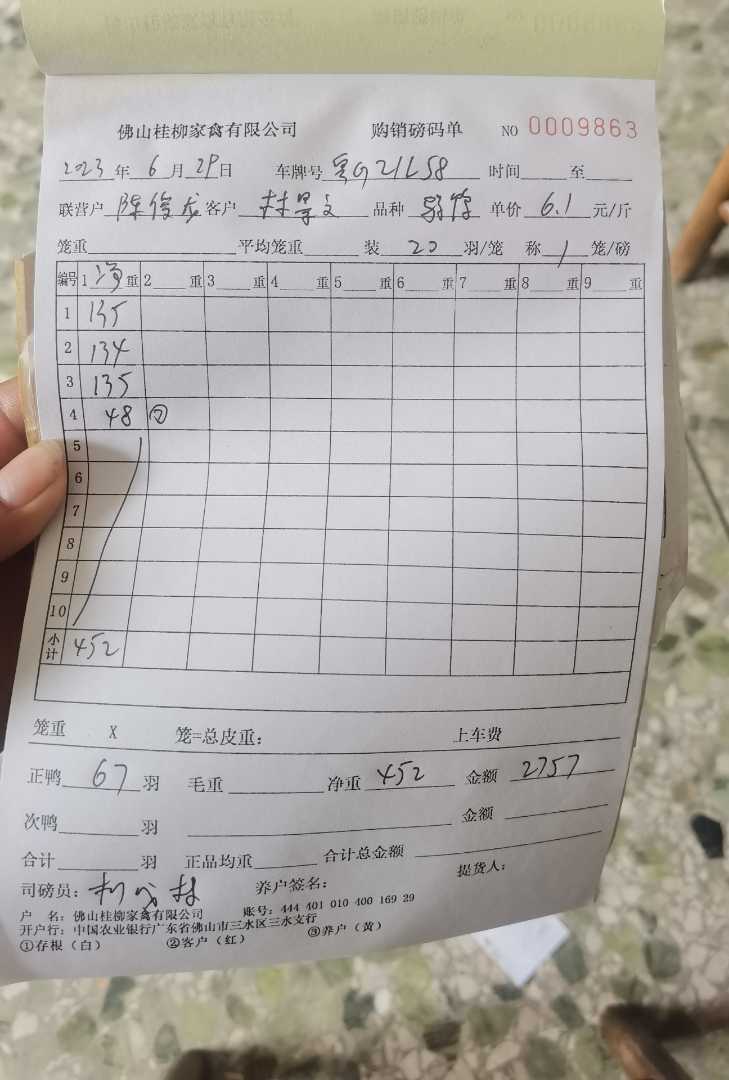 佛山桂柳家禽有限公司 购销磅码单 NO 0009863
2023年6月29日 车牌号 粤G21L58 时间 至
联营户 陈俊龙 客户 林景文 品种 单价 6.1 元/斤
笼重 平均笼重 装 20 羽/笼 称 1 笼/磅
编号 1 净 重 2 重 3 重 4 重 5 重 6 重 7 重 8 重 9 重
1 135
2 134
3 135
4 48 ⑦
5
6
7
8
9
10
小计 452
笼重 X 笼=总皮重: 上车费
正鸭 67 羽 毛重 净重 452 金额 2757
次鸭 羽 金额
合计 羽 正品均重 合计总金额
司磅员: 养户签名: 提货人:
户 名: 佛山桂柳家禽有限公司 账号: 444 401 010 400 169 29
开户行: 中国农业银行广东省佛山市三水区三水支行
①存根(白) ②客户(红) ③养户(黄)